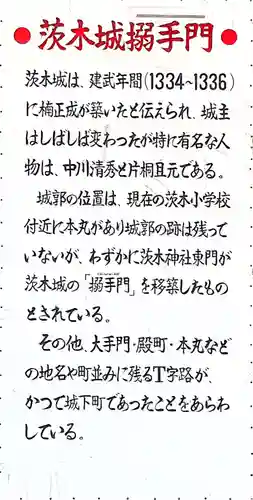 ● 茨木城搦手門 ●
茨木城は、建武年間(1334~1336)
に楠正成が築いたと伝えられ、城主
はしばしば変わったが特に有名な人
物は、中川清秀と片桐且元である。
城郭の位置は、現在の茨木小学校
付近に本丸があり城郭の跡は残って
いないが、わずかに茨木神社東門が
茨木城の「搦手門」を移築したもの
とされている。
その他、大手門・殿町・本丸など
の地名や町並みに残るT字路が、
かつて城下町であったことをあらわ
している。